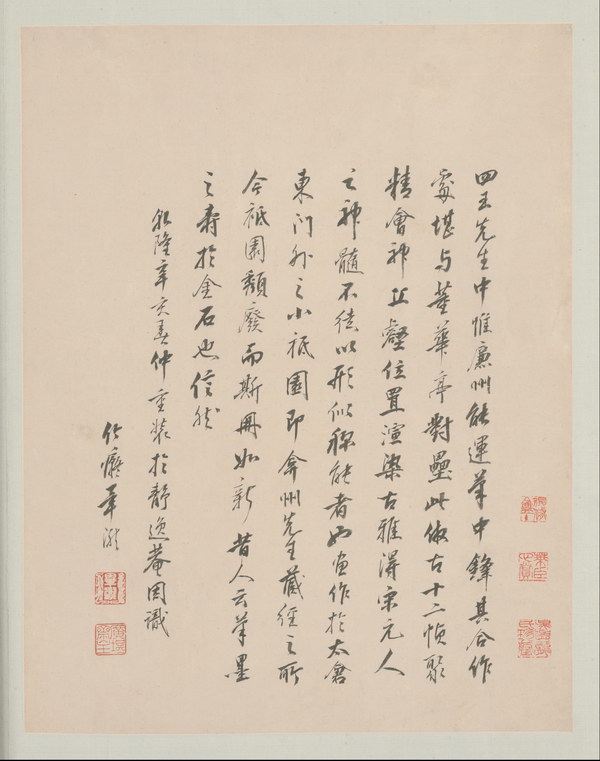 四王先生中惟廉州能運筆中鋒其合作
處堪与董華亭對壘此倣古十二幀聚
精會神丘壑位置渲染古雅得宋元人
之神髓不徒以形似稱能者也画作於太倉
東门外之小祗園即弇州先生藏經之所
今祗園頹廢而斯冊如新昔人云筆墨
之壽於金石也信然
乾隆辛亥春仲重裝於靜逸菴因識
竹癡畢瀧